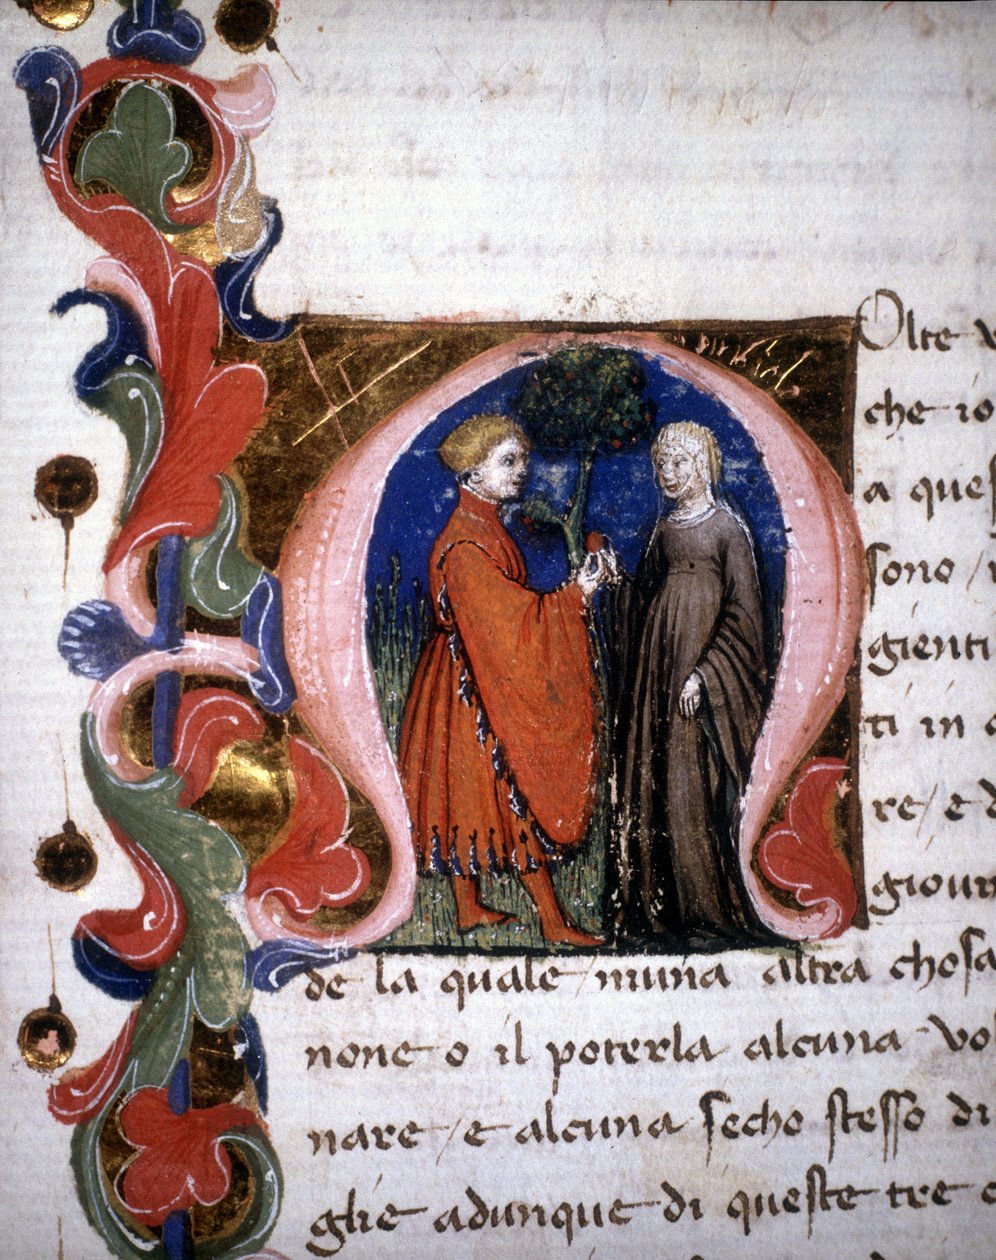 MOlte v
che io
a ques
sono /
gienti
ti in a
re / e d
giouin
de la quale / niuna altra chosa
none o il poterla alcuna vol
nare / e alcuna secho stesso di
glie adunque di queste tre